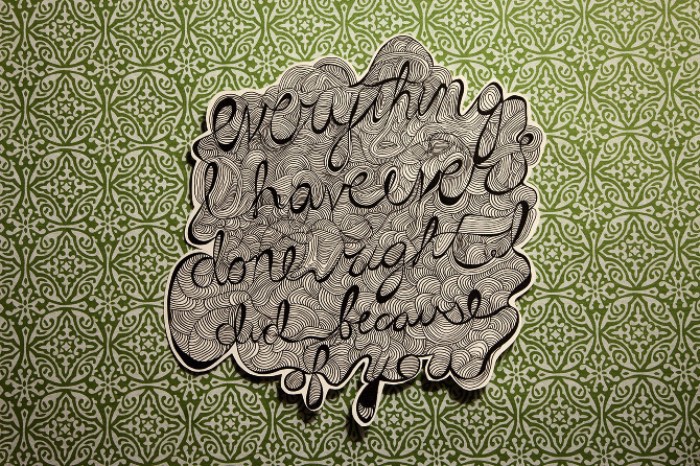 everything
I have ever
done right I
did because
of you